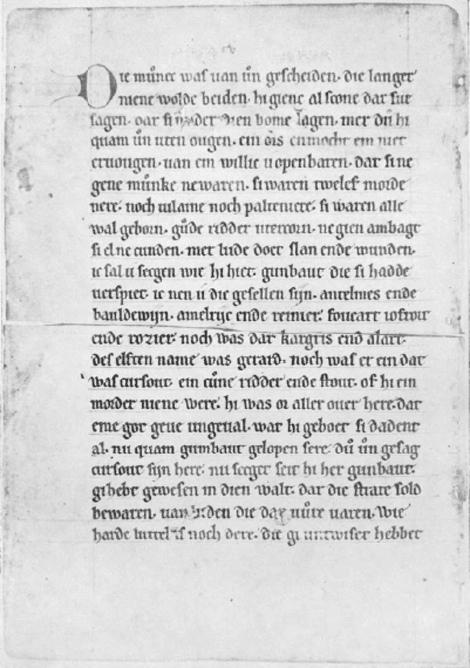 Die münec was uan ūn gescheiden. die langer
niene wolde beiden. hi giene al scone dar sur
sagen. dar si under dien bome lagen. mer dū hi
quam ūn uren ougen. ein ors enmocht em niet
eruougen. uan em willic uopenbaren. dar sine
gene münke newaren. si waren twelef morde
nere. noch uilaine noch paltenere. si waren alle
wal geborn. gůde ridder uterrorn. negien ambagt
si el ne cunden. met lude doet slan ende wunden.
ic sal u seegen wie hi hiet. gunbaut die si hadde
uerspiet. ic nen u die gesellen sijn. antelmes ende
bauldewijn. amelrijc ende reinier. foucart iofroit
ende rozier. noch was dar kargris end alart.
des elften name was gerard. noch was er ein dat
was cursout. ein cůne ridder ende stout. of hi ein
morder niene were. hi was or aller ouer here. dat
eme got geue ungeual. war hi geboet si dadent
al. nu quam gumbaut gelopen sere. dů ūn gesag
cursout sijn here. nu seeget seit hi her gunbaut.
gi hebt gewesen in dien walt. dar die strate sold
bewaren. uan liden die dar uůre uaren. wie
harde luttel is noch dere. die gi untwiser hebbet